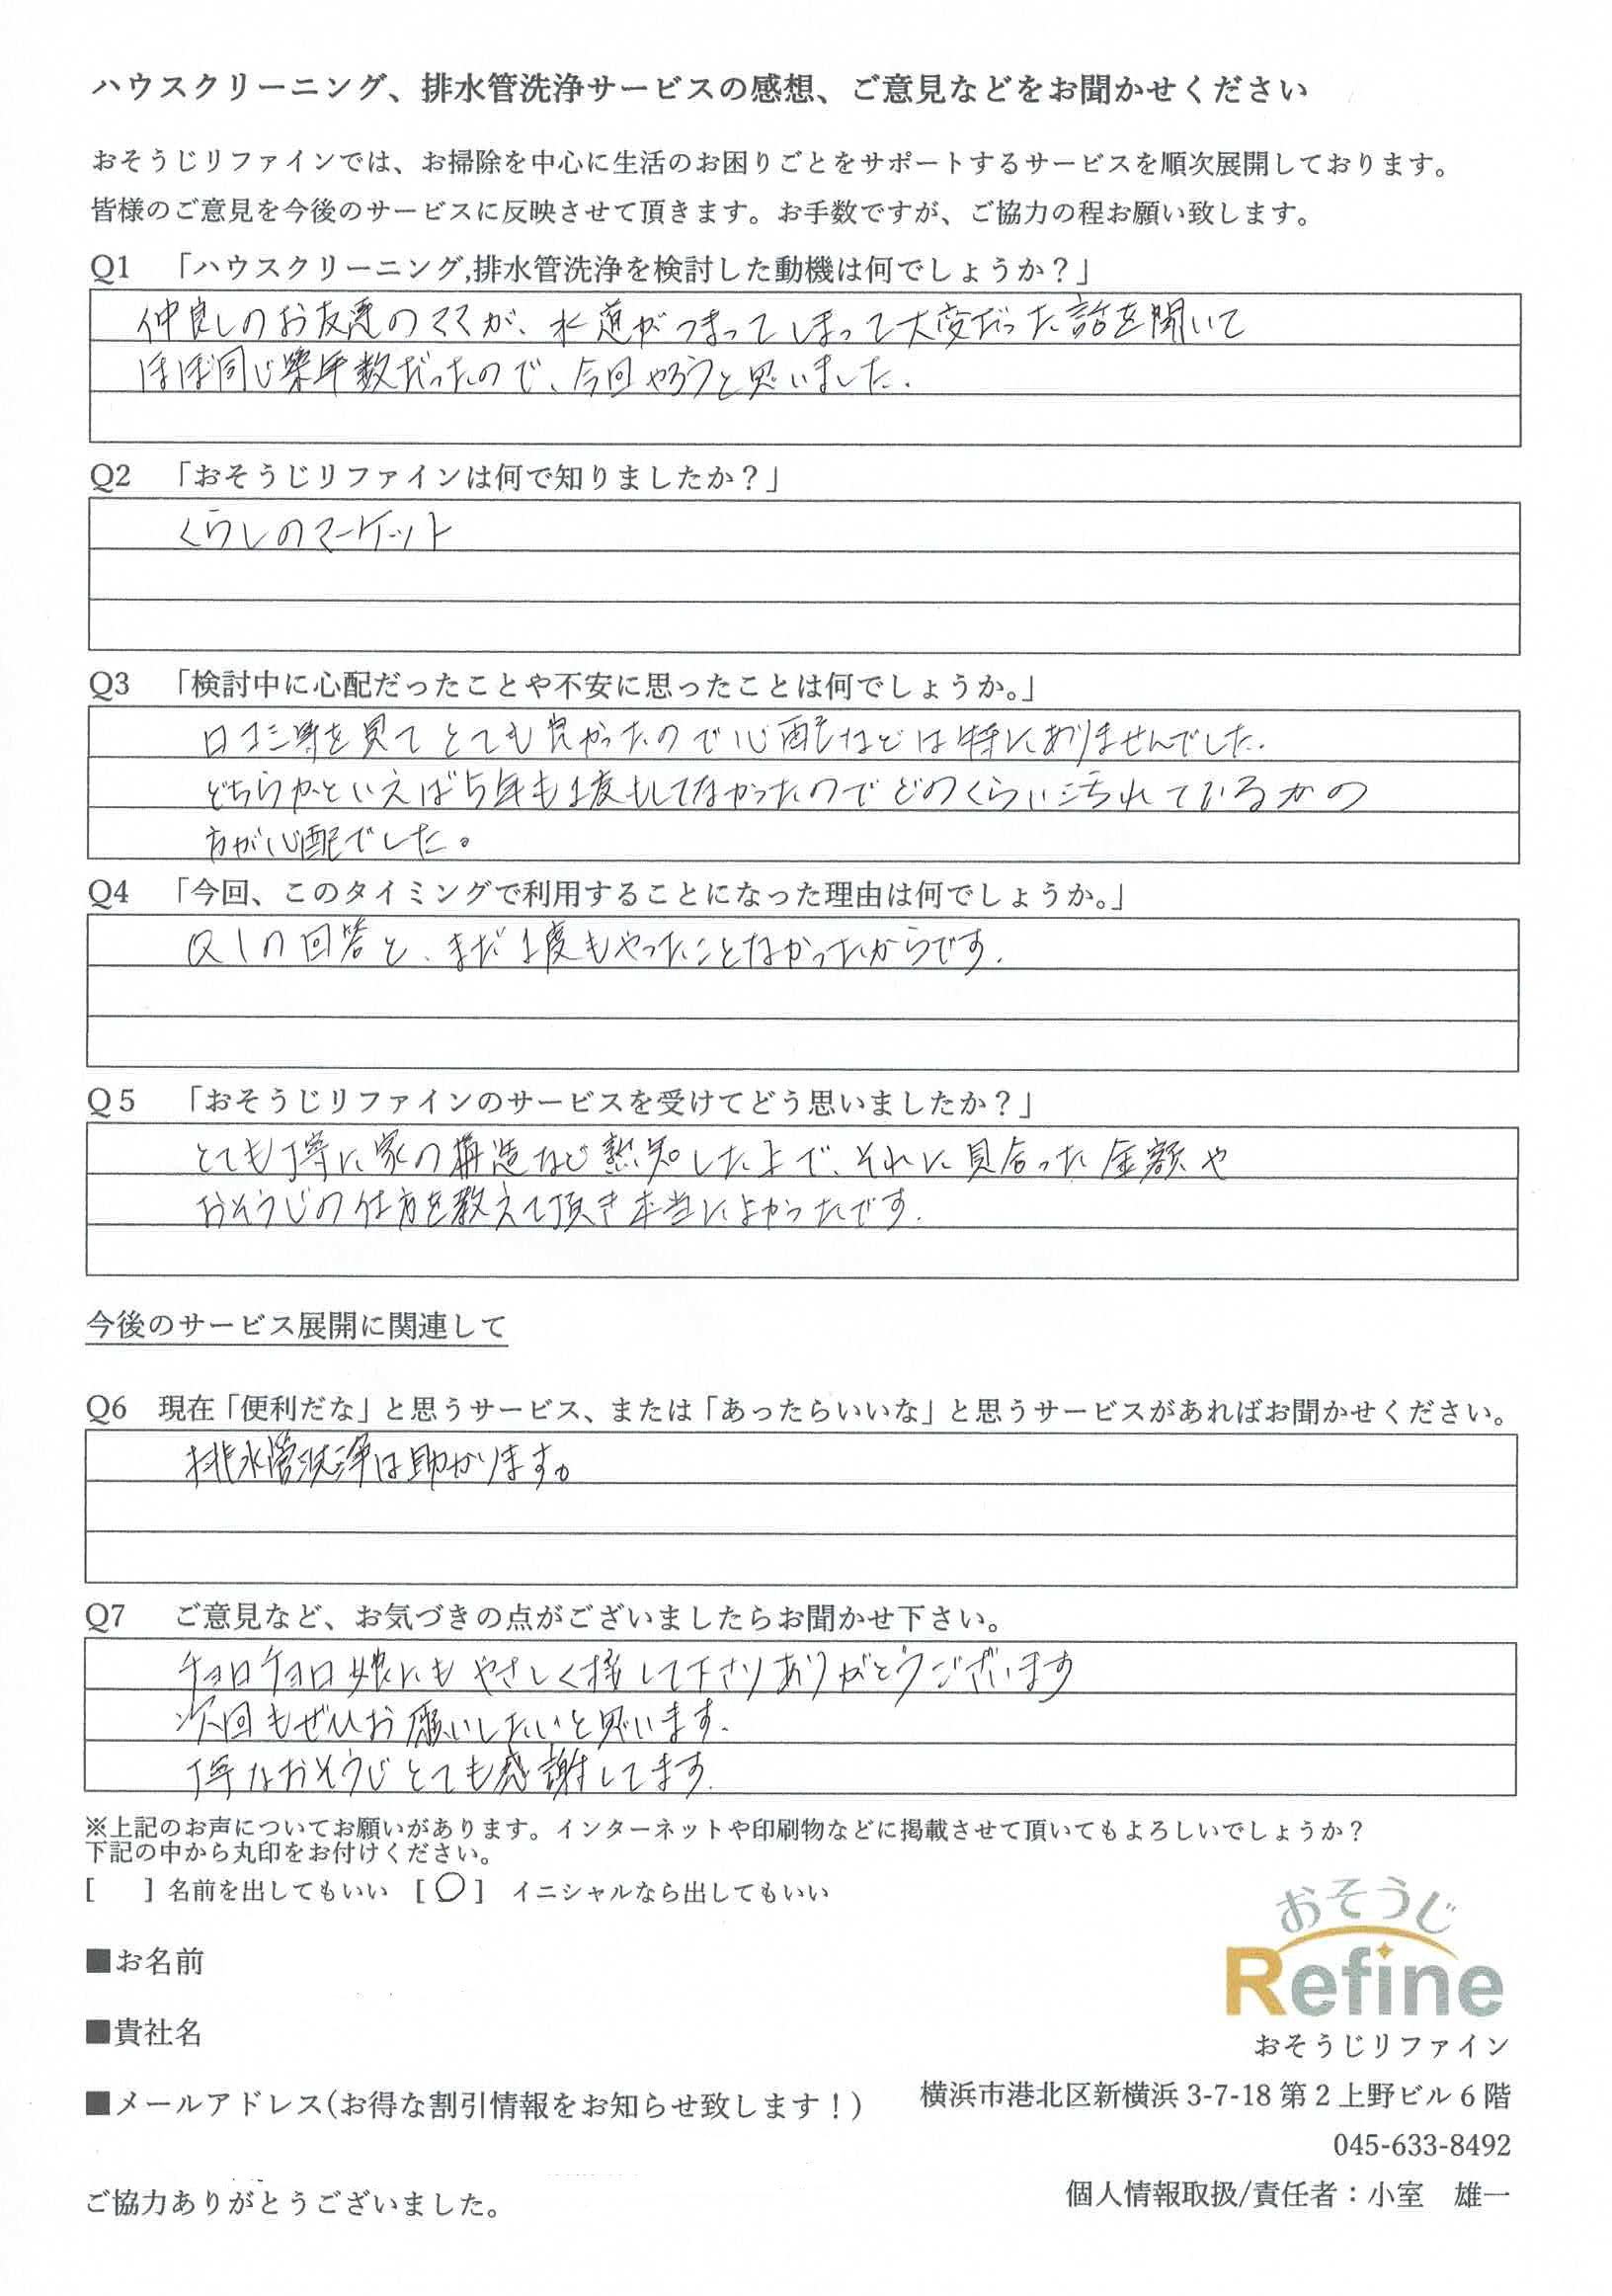 ハウスクリーニング、排水管洗浄サービスの感想、ご意見などをお聞かせください
おそうじリファインでは、お掃除を中心に生活のお困りごとをサポートするサービスを順次展開しております。
皆様のご意見を今後のサービスに反映させて頂きます。お手数ですが、ご協力の程お願い致します。
Q1 「ハウスクリーニング,排水管洗浄を検討した動機は何でしょうか？」
仲良しのお友達のママが、水道がつまってしまって大変だった話を聞いて
ほぼ同じ築年数だったので、今回やろうと思いました.
Q2 「おそうじリファインは何で知りましたか？」
くらしのマーケット
Q3 「検討中に心配だったことや不安に思ったことは何でしょうか。」
口コミ等を見てとても良かったので心配などは特にありませんでした.
どちらかといえば5年も1度もしてなかったのでどのくらい汚れているかの
方が心配でした。
Q4 「今回、このタイミングで利用することになった理由は何でしょうか。」
Q1の回答と、まだ1度もやったことなかったからです.
Q5 「おそうじリファインのサービスを受けてどう思いましたか？」
とても丁寧に家の構造など熟知した上で、それに見合った金額や
おそうじの仕方を教えて頂き本当によかったです.
今後のサービス展開に関連して
Q6 現在「便利だな」と思うサービス、または「あったらいいな」と思うサービスがあればお聞かせください。
排水管洗浄は助かります。
Q7 ご意見など、お気づきの点がございましたらお聞かせ下さい。
チョロチョロ娘にもやさしく接して下さりありがとうございます
次回もぜひお願いしたいと思います.
丁寧なおそうじとても感謝してます.
※上記のお声についてお願いがあります。インターネットや印刷物などに掲載させて頂いてもよろしいでしょうか？
下記の中から丸印をお付けください。
[ ] 名前を出してもいい [○] イニシャルなら出してもいい
おそうじ
Refine
■お名前
■貴社名
おそうじリファイン
■メールアドレス(お得な割引情報をお知らせ致します！)
横浜市港北区新横浜 3-7-18 第 2 上野ビル 6 階
045-633-8492
ご協力ありがとうございました。
個人情報取扱/責任者：小室 雄一